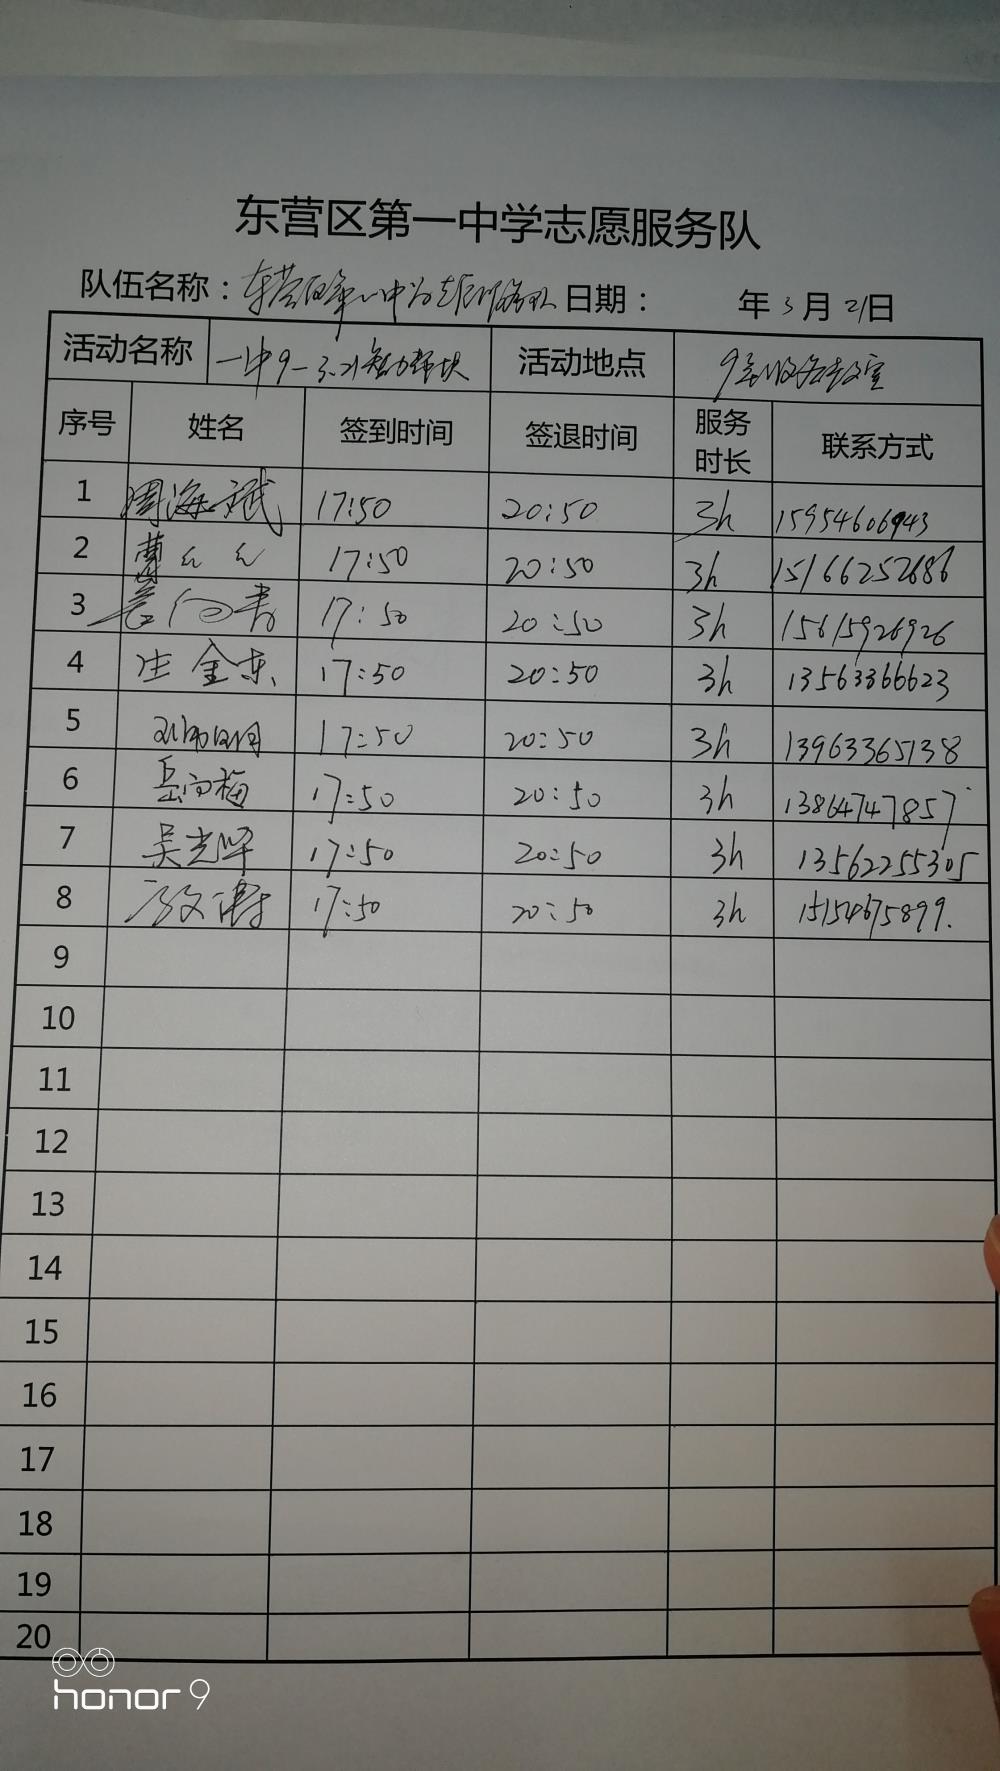 东营区第一中学志愿服务队
队伍名称：东营区第一中学志愿服务队 日期： 年 3 月 21 日
活动名称 一中9-3.21 活动地点 9
序号 姓名 签到时间 签退时间 服务时长 联系方式
1 周海斌 17:50 20:50 3h 15954606943
2 17:50 20:50 3h 15166252686
3 17:50 20:50 3h 15615926926
4 庄金东 17:50 20:50 3h 13563366623
5 17:50 20:50 3h 13963365138
6 岳向梅 17:50 20:50 3h 13864747857
7 吴光峰 17:50 20:50 3h 13562255305
8 17:50 20:50 3h 15154675899.
9
10
11
12
13
14
15
16
17
18
19
20
honor 9